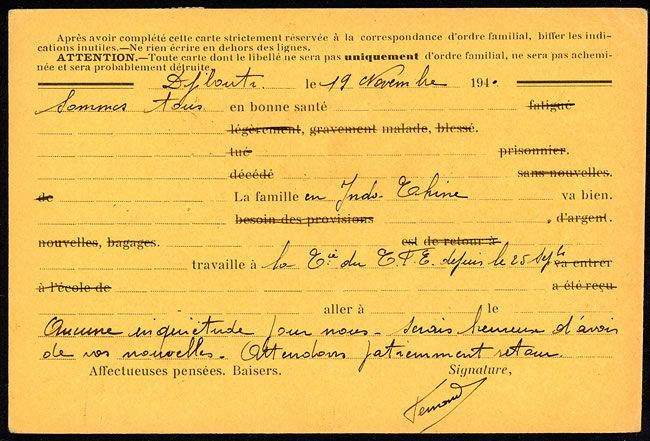 Après avoir complété cette carte strictement réservée à la correspondance d'ordre familial, biffer les indi-
cations inutiles.—Ne rien écrire en dehors des lignes.
ATTENTION.—Toute carte dont le libellé ne sera pas uniquement d'ordre familial, ne sera pas achemi-
née et sera probablement détruite.
Djibouti le 19 Novembre 1940
Sommes tous en bonne santé fatigué
légèrement, gravement malade, blessé.
tué prisonnier.
décédé sans nouvelles.
de La famille en Indo-Chine va bien.
besoin des provisions d'argent.
nouvelles, bagages. est de retour à
travaille à la Cie du C.F.E. depuis le 25 Sept va entrer
à l'école de a été reçu
aller à le
Aucune inquiétude pour nous - serais heureux d'avoir
de vos nouvelles - Attendons patiemment retour
Affectueuses pensées. Baisers. Signature,
Fernand